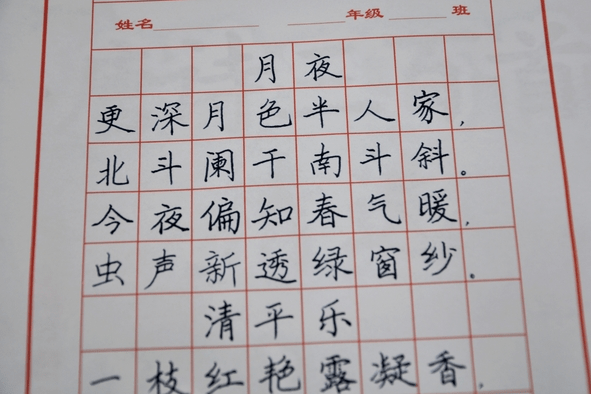 姓名 年级 班
月夜
更深月色半人家,
北斗阑干南斗斜。
今夜偏知春气暖,
虫声新透绿窗纱。
清平乐
一枝红艳露凝香,